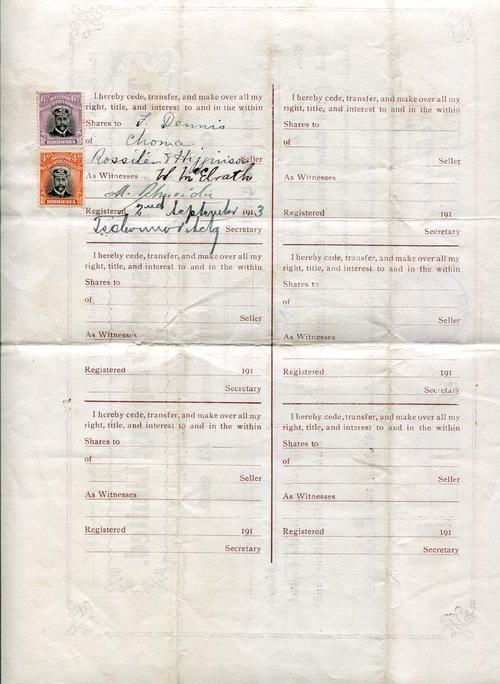 6D 6D
RHODESIA
4D 4D
RHODESIA
I hereby cede, transfer, and make over all my
right, title, and interest to and in the within
Shares to F. Dennis
of Choma
Rossiter & Higginson Seller
As Witnesses W McElrath
Registered 2nd September 1913
Secretary
I hereby cede, transfer, and make over all my
right, title, and interest to and in the within
Shares to
of
Seller
As Witnesses
Registered 191
Secretary
I hereby cede, transfer, and make over all my
right, title, and interest to and in the within
Shares to
of
Seller
As Witnesses
Registered 191
Secretary
I hereby cede, transfer, and make over all my
right, title, and interest to and in the within
Shares to
of
Seller
As Witnesses
Registered 191
Secretary
I hereby cede, transfer, and make over all my
right, title, and interest to and in the within
Shares to
of
Seller
As Witnesses
Registered 191
Secretary
I hereby cede, transfer, and make over all my
right, title, and interest to and in the within
Shares to
of
Seller
As Witnesses
Registered 191
Secretary